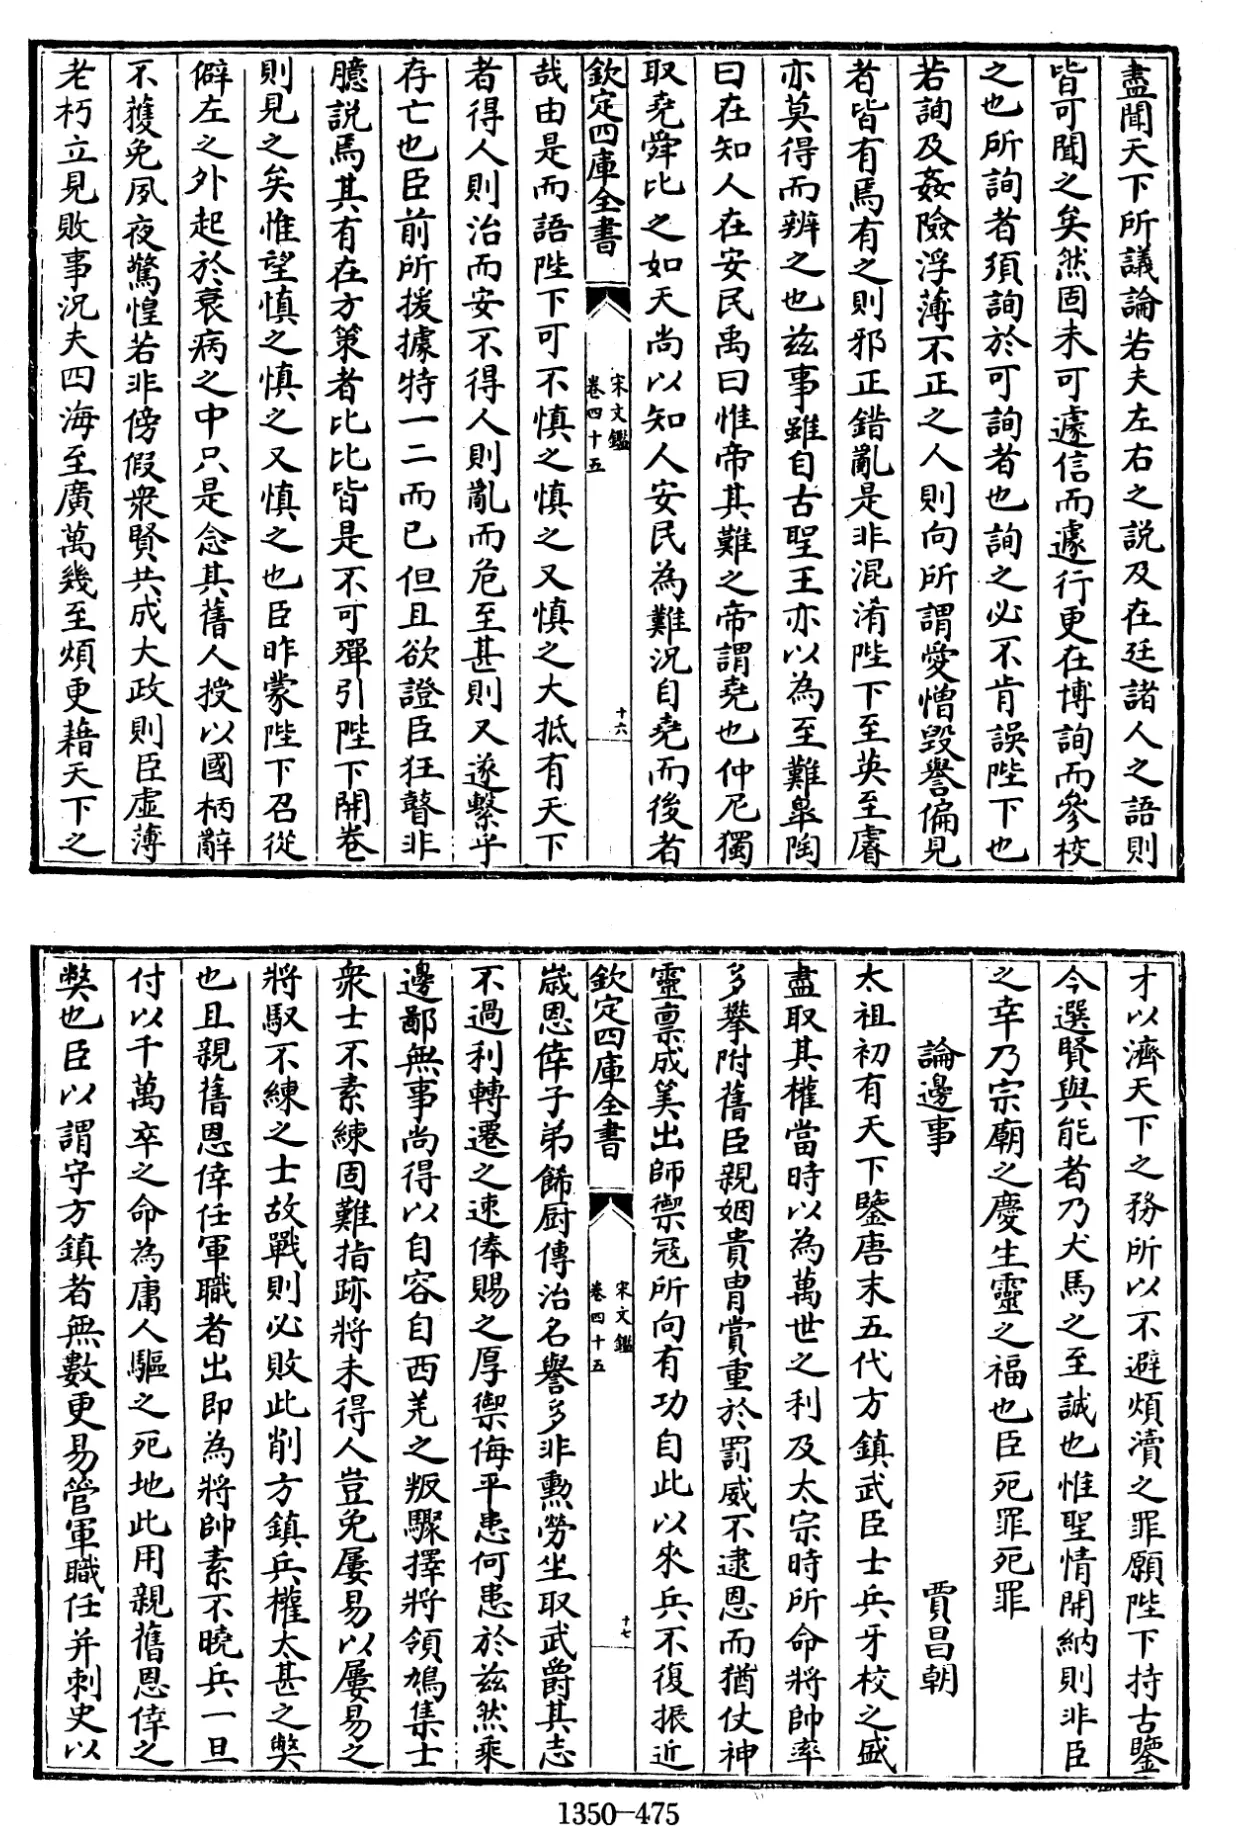 盡聞天下所議論若夫左右之說及在廷諸人之語則
皆可聞之矣然固未可遽信而遽行更在博詢而參校
之也所詢者須詢於可詢者也詢之必不肯誤陛下也
若詢及姦險浮薄不正之人則向所謂愛憎毀譽偏見
者皆有焉有之則邪正錯亂是非混淆陛下至英至睿
亦莫得而辨之也兹事雖自古聖王亦以為至難臯陶
曰在知人在安民禹曰惟帝其難之帝謂堯也仲尼獨
取堯舜比之如天尚以知人安民為難況自堯而後者
欽定四庫全書
宋文鑑
卷四十五
十六
哉由是而語陛下可不慎之慎之又慎之大抵有天下
者得人則治而安不得人則亂而危至甚則又遂繫乎
存亡也臣前所援據特一二而已但且欲證臣狂瞽非
臆說焉其有在方策者比比皆是不可殫引陛下開卷
則見之矣惟望慎之慎之又慎之也臣昨蒙陛下召從
僻左之外起於衰病之中只是念其舊人授以國柄辭
不獲免夙夜驚惶若非傍假衆賢共成大政則臣虛薄
老朽立見敗事況夫四海至廣萬幾至煩更藉天下之
才以濟天下之務所以不避煩瀆之罪願陛下持古鑒
今選賢與能者乃犬馬之至誠也惟聖情開納則非臣
之幸乃宗廟之慶生靈之福也臣死罪死罪
論邊事 賈昌朝
太祖初有天下鑒唐末五代方鎮武臣士兵牙校之盛
盡取其權當時以為萬世之利及太宗時所命將帥率
多攀附舊臣親姻貴胄賞重於罰威不逮恩而猶仗神
靈禀成筭出師禦寇所向有功自此以來兵不復振近
欽定四庫全書
宋文鑑
卷四十五
十七
歲恩倖子弟飾厨傳沽名譽多非勲勞坐取武爵其志
不過利轉遷之速俸賜之厚禦侮平患何患於兹然乘
邊鄙無事尚得以自容自西羌之叛驟擇將領鳩集士
衆士不素練固難指跡將未得人豈免屢易以屢易之
將馭不練之士故戰則必敗此削方鎮兵權太甚之弊
也且親舊恩倖任軍職者出即為將帥素不曉兵一旦
付以千萬卒之命為庸人驅之死地此用親舊恩倖之
弊也臣以謂守方鎮者無數更易管軍職任并刺史以
1350-475